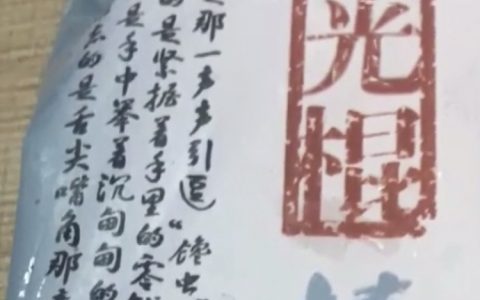 光棍
那一声声引逗“馋虫
的是紧握着手里的零
是手中举着沉甸甸的
的是舌尖嘴角那